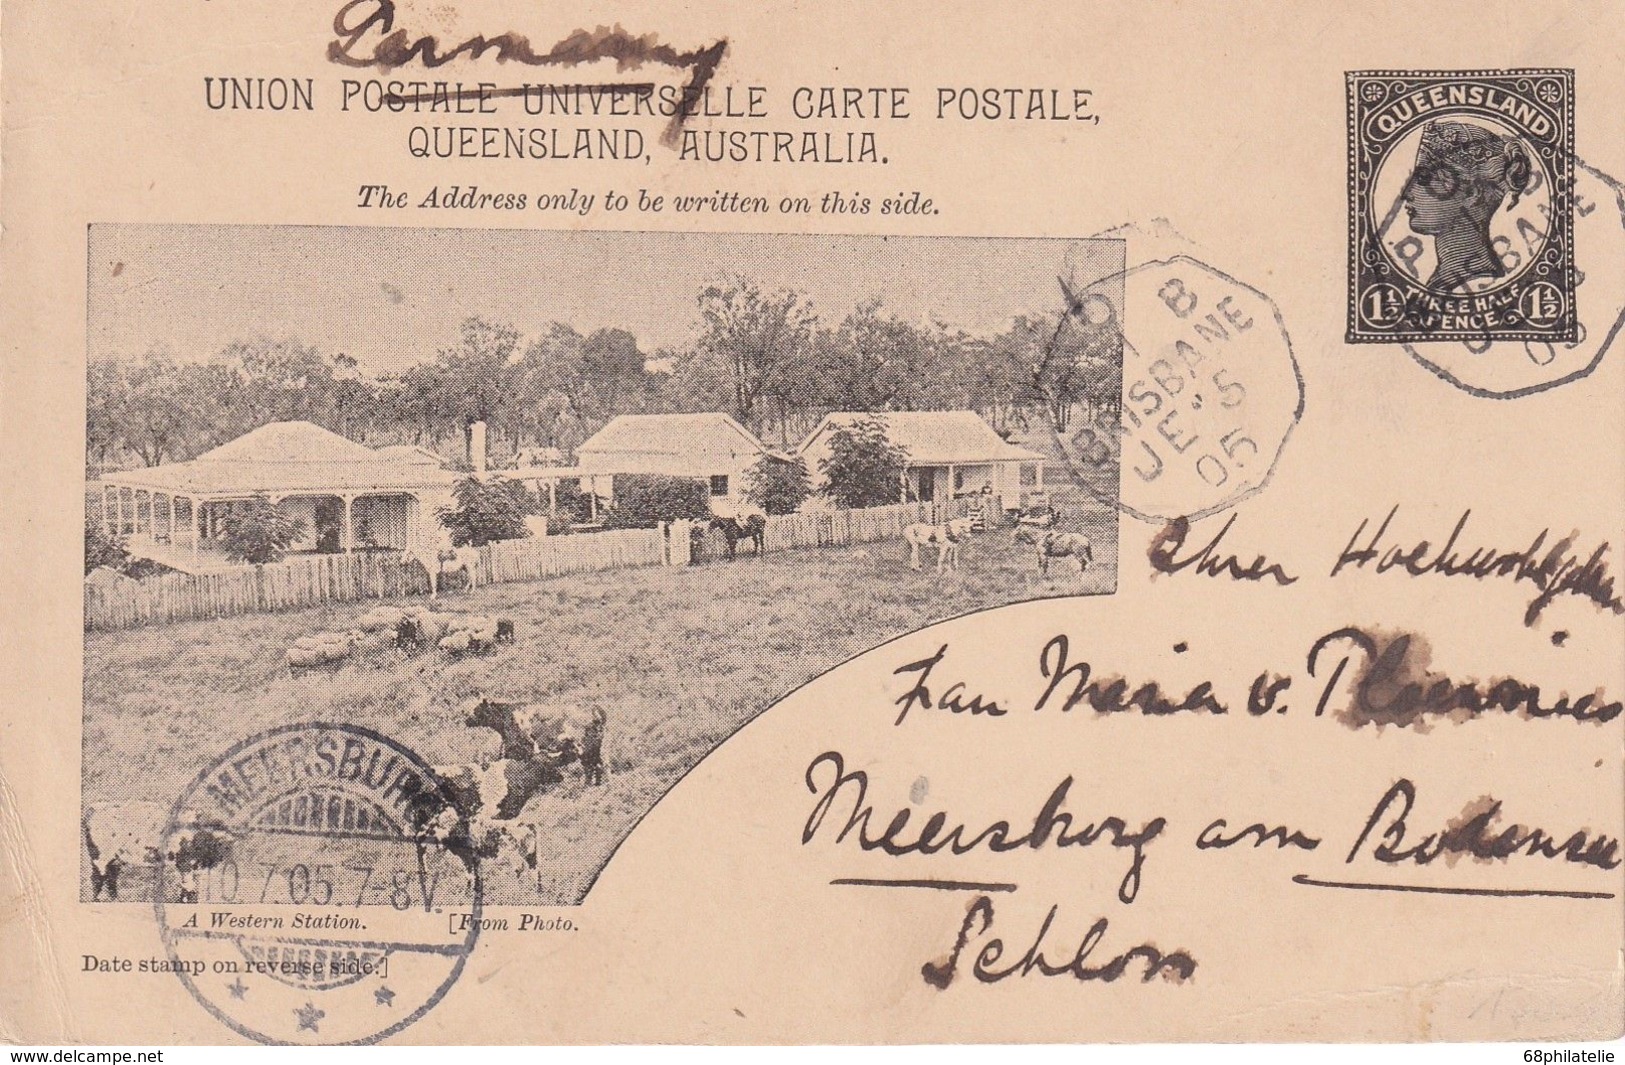 Germany
UNION POSTALE UNIVERSELLE CARTE POSTALE,
QUEENSLAND, AUSTRALIA.
The Address only to be written on this side.
QUEENSLAND
THREE HALF
PENCE
1½ 1½
BRISBANE
05
G.P.O B
BRISBANE
JE 5
05
Ihrer Hochwohlgeboren
Frau Maria v. Ploennies
Meersburg am Bodensee
Schloss
MEERSBURG
10.7.05.7-8V.
A Western Station. [From Photo.
Date stamp on reverse side.]
delcampe.net
68philatelie